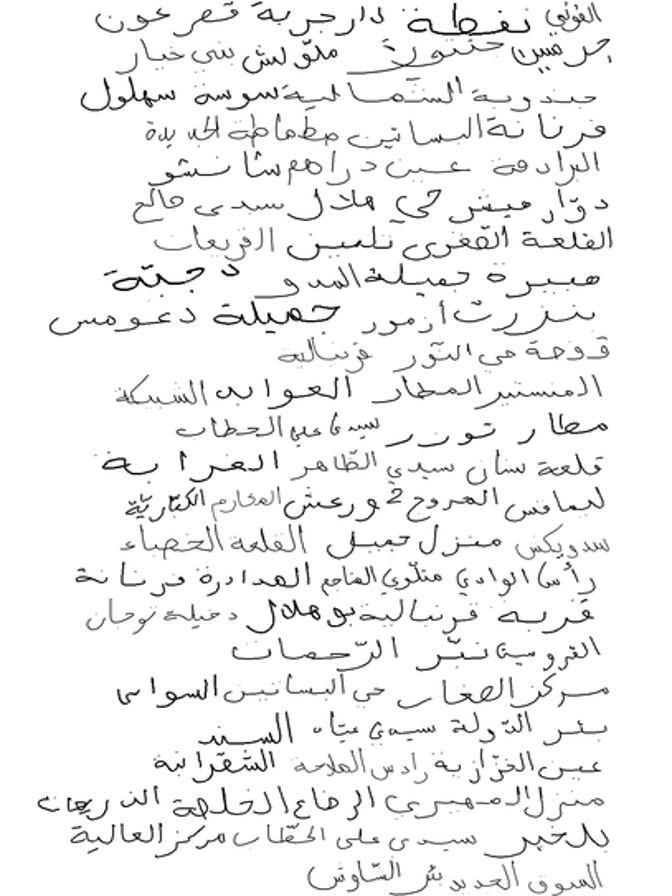 الفوني نفطة دار جربة قصر عون
جرميين خنتوش ملولش بني خيار
جندوبة الشمالية سوسة سهلول
فرنانة البساتين مطماطة الجديدة
البرادعة عين دراهم شانشو
دوار ميشر حي هلال سيدي صالح
القلعة الصغرى تلمين القريعات
هبيرة جميلة المدو دجبة
بنزرت أزمور جميلة دعومس
حي النور قرنبالية
المنستير المطار العوابد الشبيكة
مطار توزر سيدي علي الحطاب
قلعة سنان سيدي الظاهر الغرابة
المروج 2 ورغش المكارم الكبارية
سدويكش منزل جميل القلعة الخصباء
رأس الوادي متلوي المناجم الهدادرة فرنانة
قربة قرنبالية بوهلال دخيلة توجان
القروسين نبر الرخمات
مركز الصغار حي البساتين السواسي
بئر الدولة سيدي عياد السند
عين الخزازية رادس الملاحة الشقرانية
منزل المهيري الرضاع الخلجة الذريعات
بلخير سيدي علي الحطاب مركز العالية
السوق الجديد بئر الشاوش